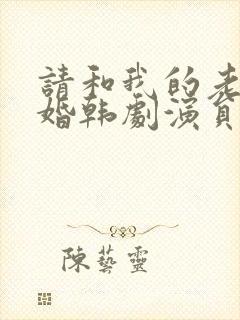 請和我的老
婚韩劇演員
陳藝靈